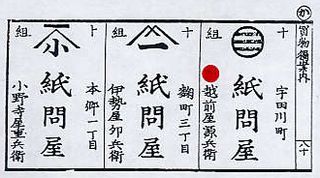 か
買物獨案内
八十
十 三 組
宇田川町
紙問屋
越前屋源兵衛
十 一 組
麹町三丁目
紙問屋
伊勢屋卯兵衛
ト 小 組
本郷一丁目
紙問屋
小野寺屋重兵衛